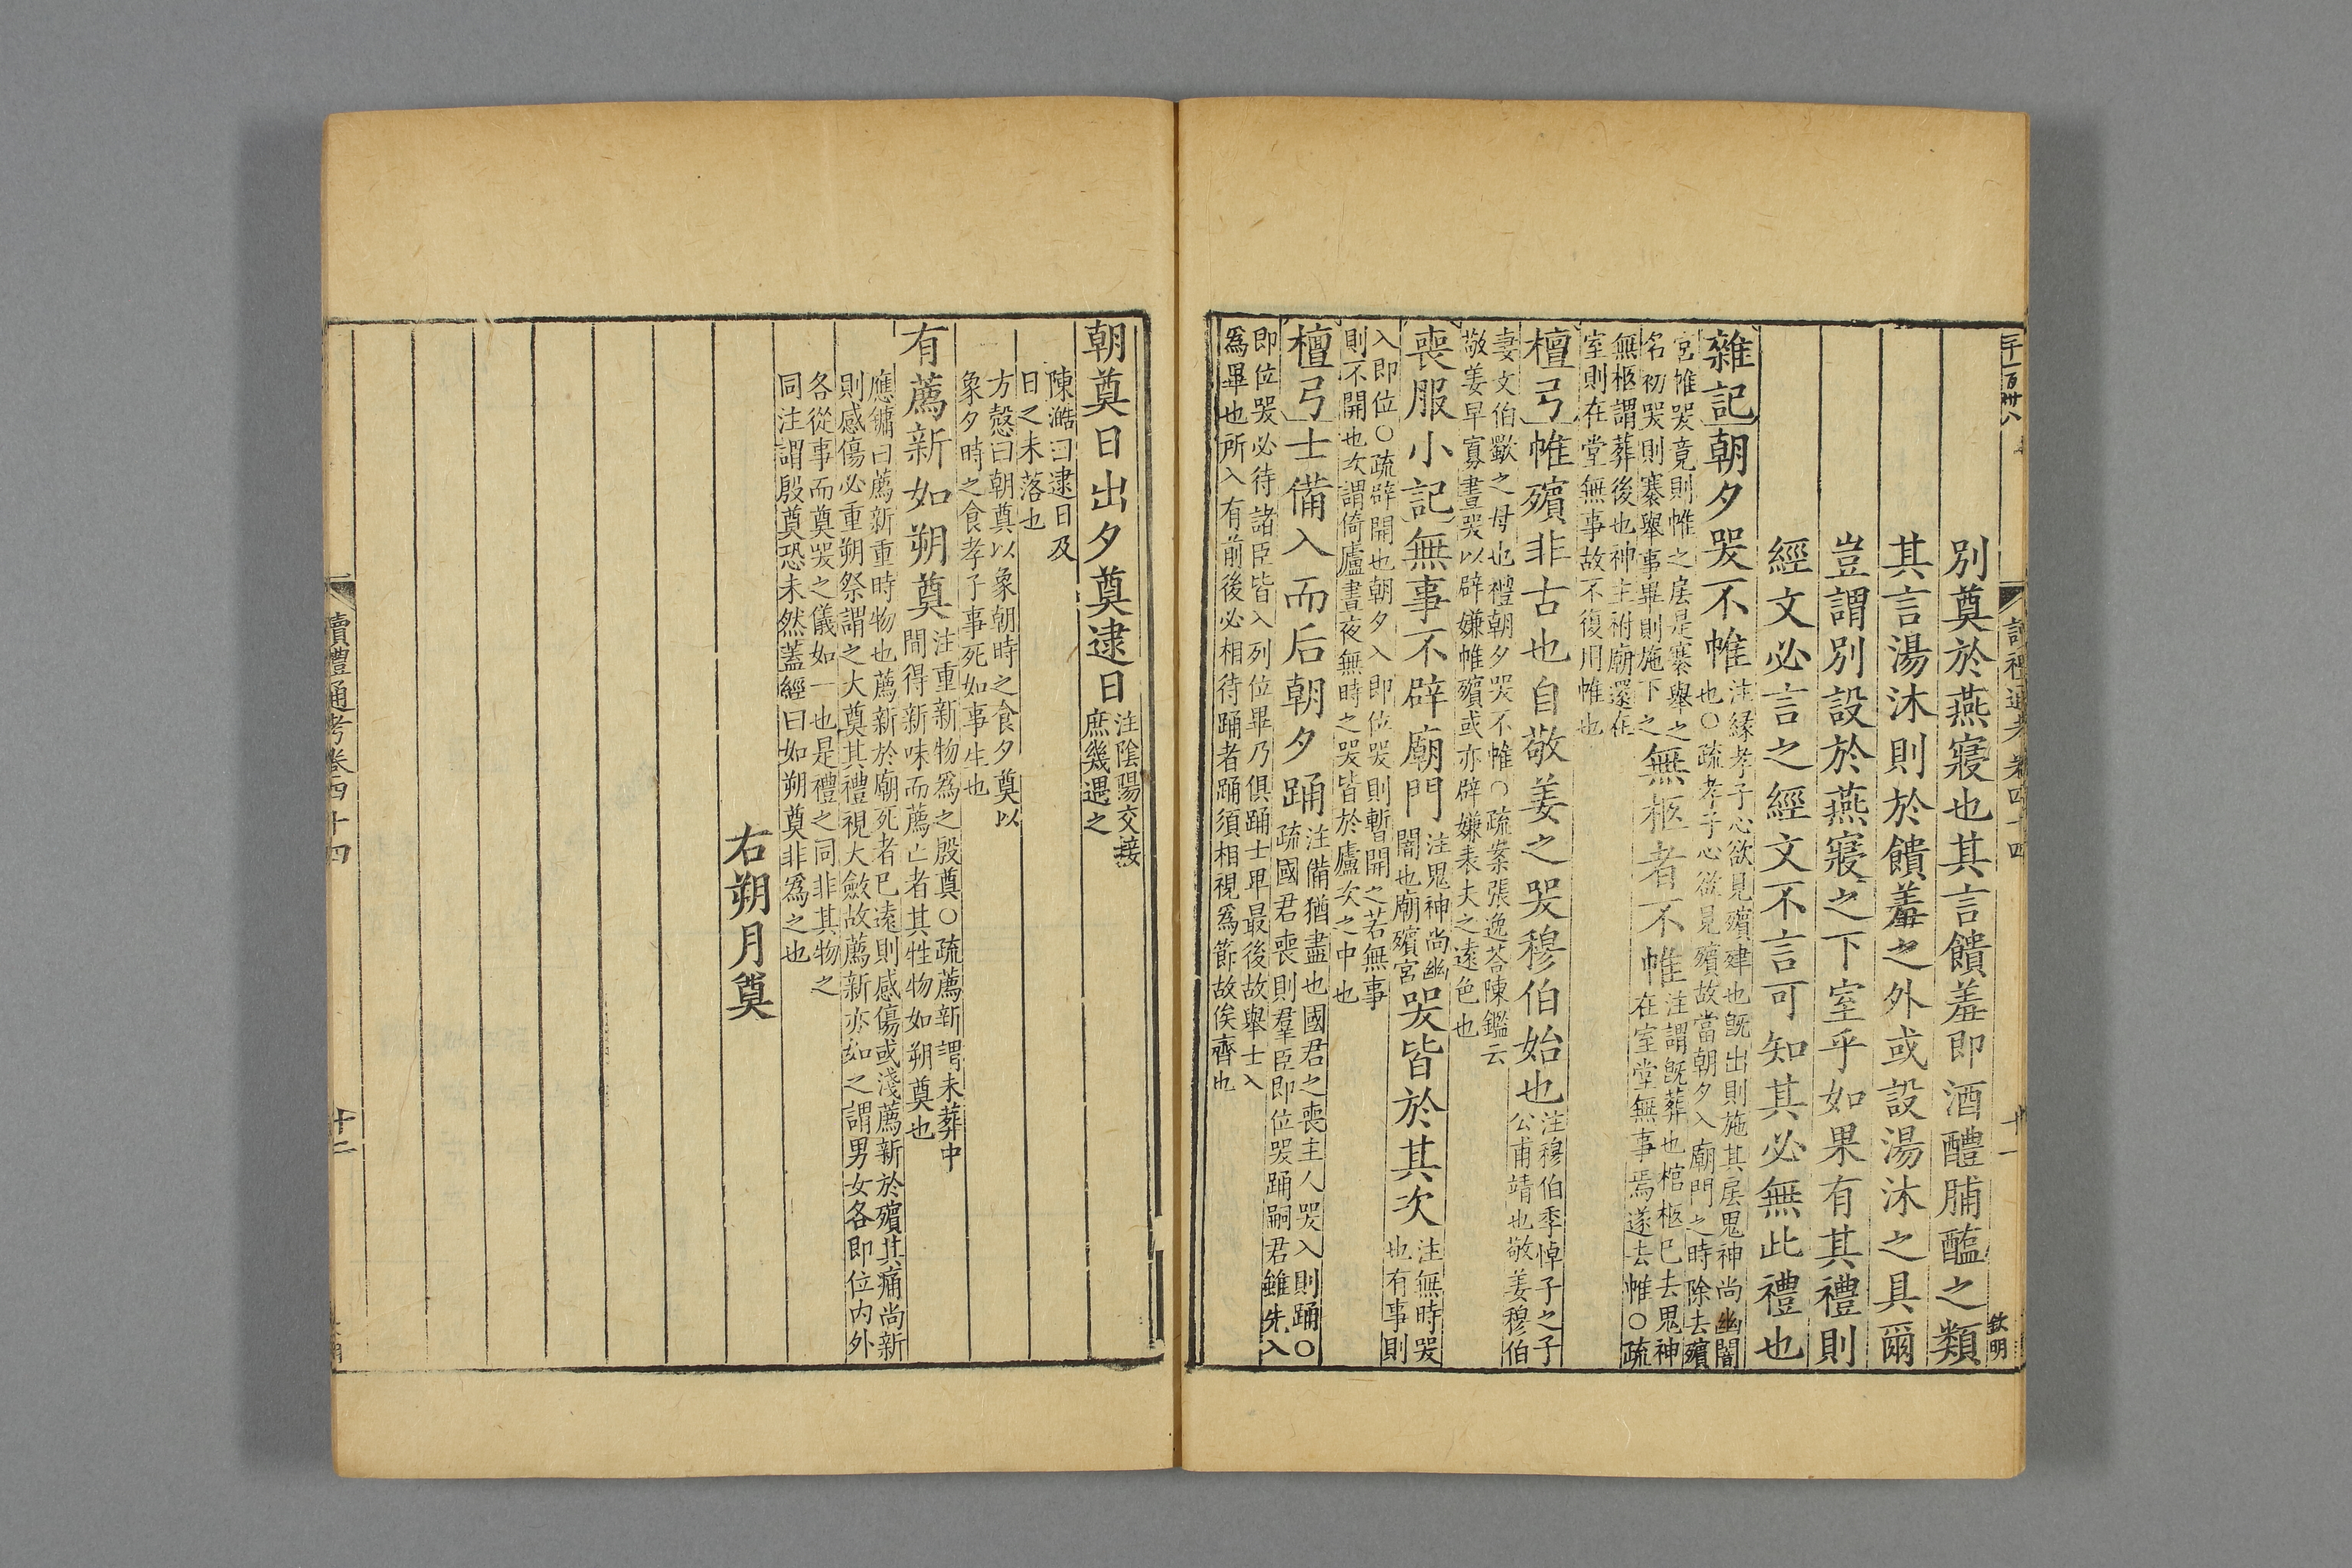 讀禮通考卷四十四
十一
欽明
別奠於燕寢也其言饋羞即酒醴脯醢之類
其言湯沐則於饋羞之外或設湯沐之具爾
豈謂別設於燕寢之下室乎如果有其禮則
經文必言之經文不言可知其必無此禮也
雜記朝夕哭不帷注緣孝子心欲見殯肂也既出則施其扆鬼神尚幽闇
也○疏孝子心欲見殯故當朝夕入廟門之時除去殯
宮帷哭竟則帷之扆是褰舉之
名初哭則褰舉事畢則施下之無柩者不帷注謂既葬也棺柩已去鬼神
在室堂無事焉遂去帷○疏
無柩謂葬後也神主祔廟還在
室則在堂無事故不復用帷也
檀弓帷殯非古也自敬姜之哭穆伯始也注穆伯季悼子之子
公甫靖也敬姜穆伯
妻文伯歜之母也禮朝夕哭不帷○疏案張逸荅陳鑑云
敬姜早寡晝哭以辟嫌帷殯或亦辟嫌表夫之遠色也
喪服小記無事不辟廟門注鬼神尚幽
闇也廟殯宮哭皆於其次注無時哭
也有事則
入即位○疏辟開也朝夕入即位哭則暫開之若無事
則不開也次謂倚廬晝夜無時之哭皆於廬次之中也
檀弓士備入而后朝夕踊注備猶盡也國君之喪主人哭入則踊○
疏國君喪則羣臣即位哭踊嗣君雖先入
即位哭必待諸臣皆入列位畢乃俱踊士卑最後故舉士入
爲畢也所入有前後必相待踊者踊須相視爲節故俟齊也
朝奠日出夕奠逮日注陰陽交接
庶幾遇之
陳澔曰逮日及
日之未落也
方慤曰朝奠以象朝時之食夕奠以
象夕時之食孝子事死如事生也
有薦新如朔奠注重新物爲之殷奠○疏薦新謂未葬中
間得新味而薦亡者其牲物如朔奠也
應鏞曰薦新重時物也薦新於廟死者已遠則感傷或淺薦新於殯其痛尚新
則感傷必重朔祭謂之大奠其禮視大斂故薦新亦如之謂男女各即位内外
各從事而奠哭之儀如一也是禮之同非其物之
同注謂殷奠恐未然蓋經曰如朔奠非爲之也
右朔月奠
讀禮通考卷四十四
十二